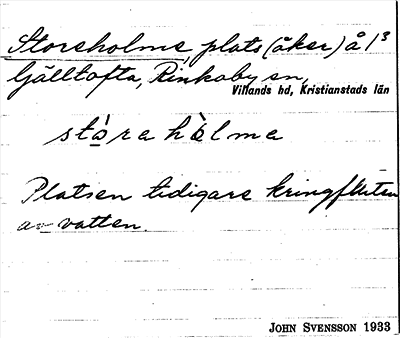 Storeholme, plats (åker) å 1³
Gälltofta, Rinkaby sn,
Villands hd, Kristianstads län
stòrehòlme
Platsen tidigare kringfluten
av vatten.
JOHN SVENSSON 1933